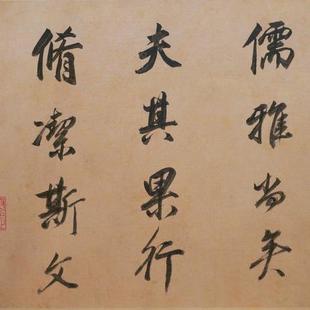 儒雅尚矣
夫其果行
脩潔斯文